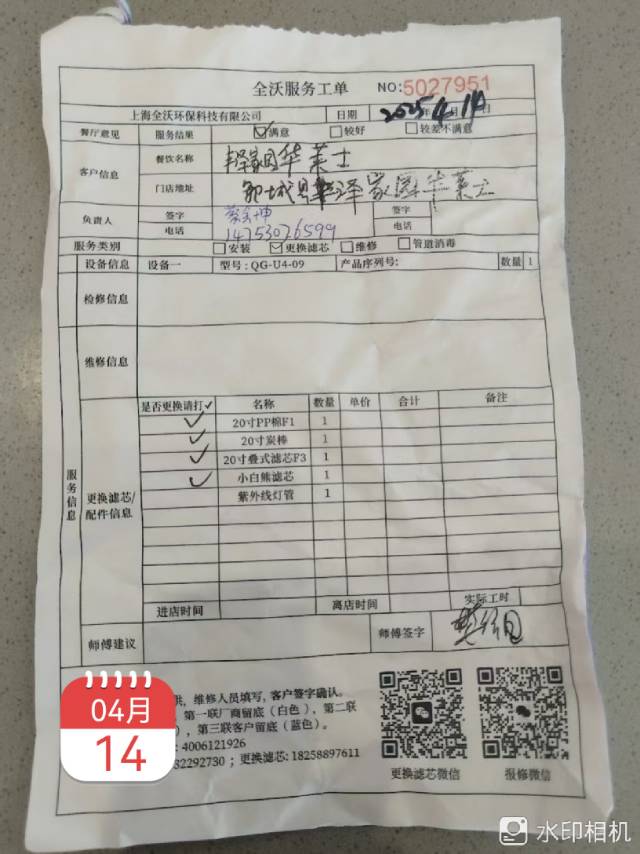 全沃服务工单 NO:5027951
上海全沃环保科技有限公司 日期 2025年4月14日
餐厅意见 服务结果 ☑满意 □较好 □较差不满意
客户信息 餐饮名称 泽家园华莱士
门店地址 县 泽家园华莱士
负责人 签字 签字
电话 14753076599 电话
服务类别 □安装 ☑更换滤芯 □维修 □管道消毒
设备信息 设备一 型号: QG-U4-09 产品序列号: 数量 1
检修信息
维修信息
服务信息
更换滤芯/配件信息
是否更换请打✓ 名称 数量 单价 合计 备注
✓ 20寸PP棉F1 1
✓ 20寸炭棒 1
✓ 20寸叠式滤芯F3 1
✓ 小白熊滤芯 1
紫外线灯管 1
进店时间 离店时间 实际工时
师傅建议 师傅签字
供，维修人员填写，客户签字确认。
，第一联厂商留底（白色），第二联
），第三联客户留底（蓝色）。
: 4006121926
82292730；更换滤芯: 18258897611
更换滤芯微信 报修微信
04月
14
水印相机